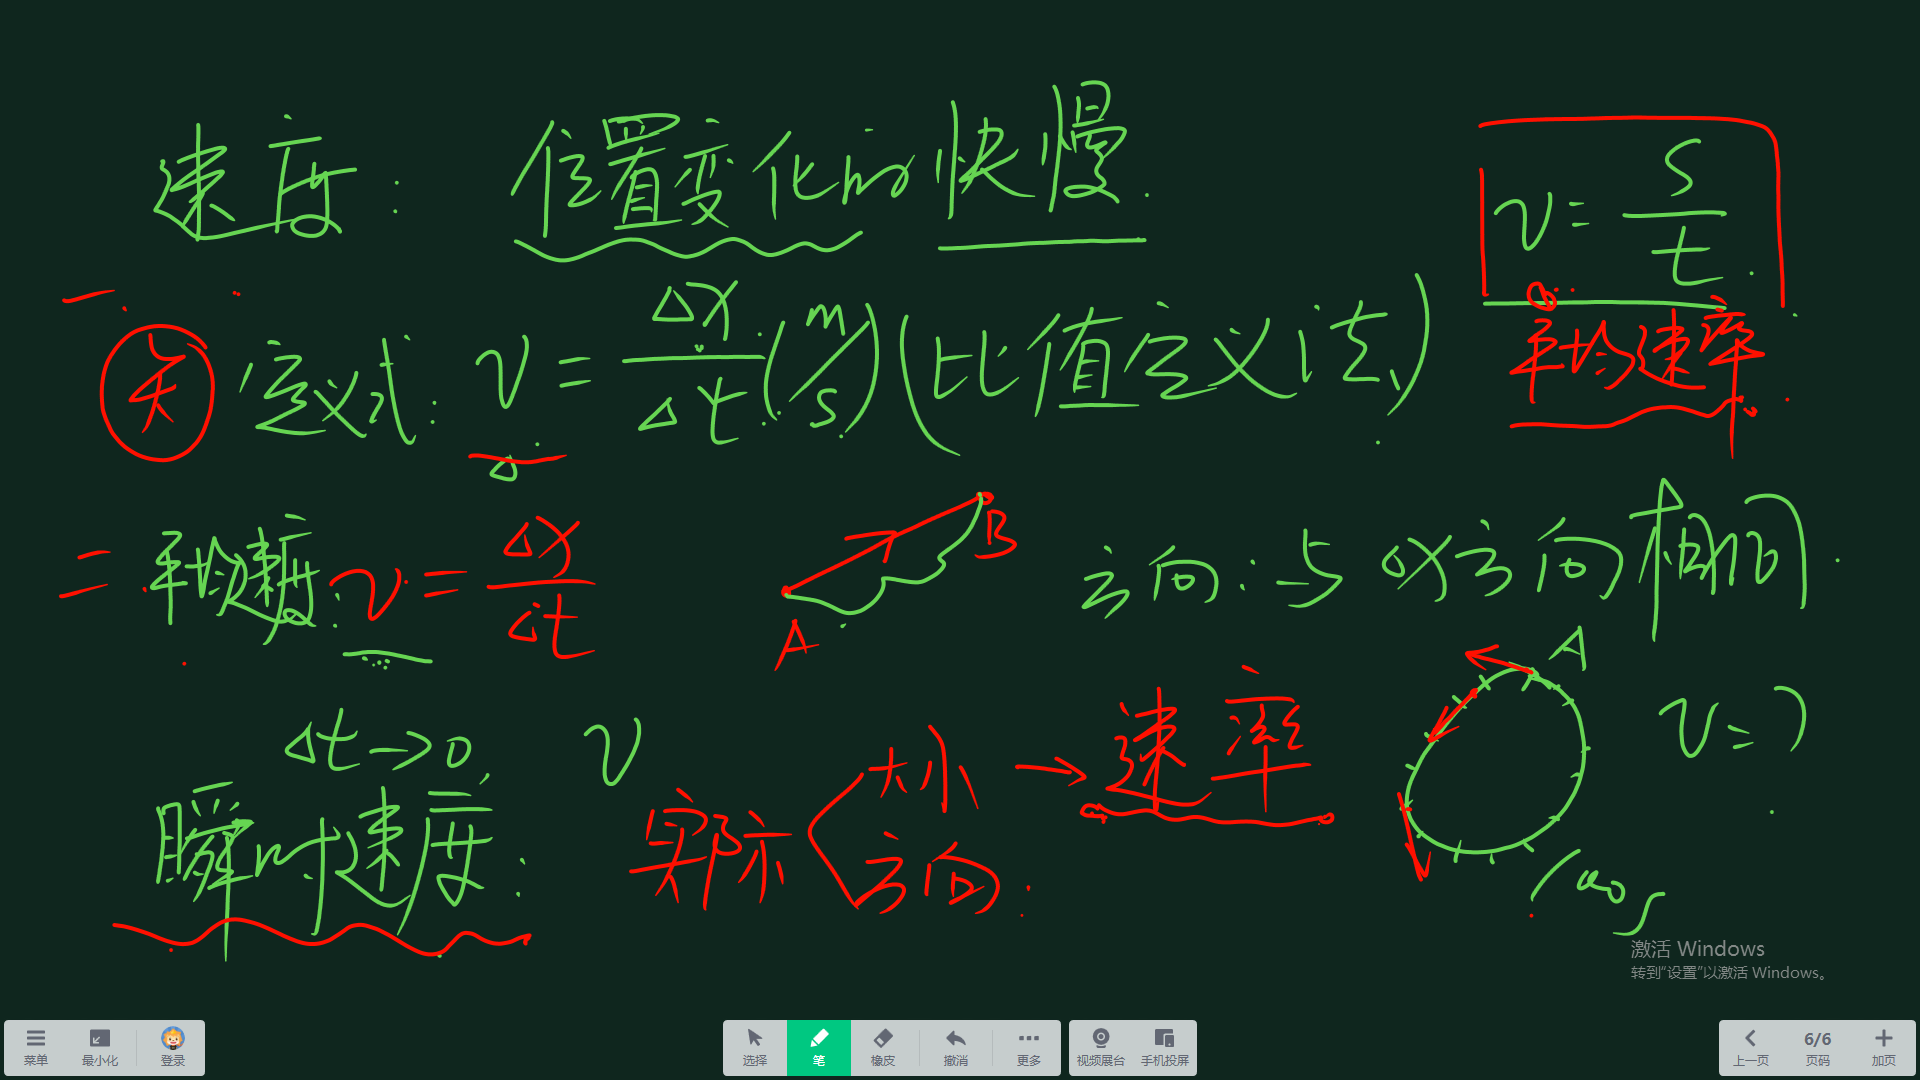 速度: 位置变化的快慢.
v = s/t
一 矢 定义式: v = Δx/Δt (m/s) (比值定义法)
平均速率
二 平均速度: v = Δx/Δt
A B
方向: 与Δx方向相同.
Δt→0
瞬时速度:
v
实际 大小 → 速率
方向.
A
v=?
激活 Windows
转到"设置"以激活 Windows。
菜单 最小化 登录 选择 笔 橡皮 撤消 更多 视频展台 手机投屏 上一页 6/6 页码 加页